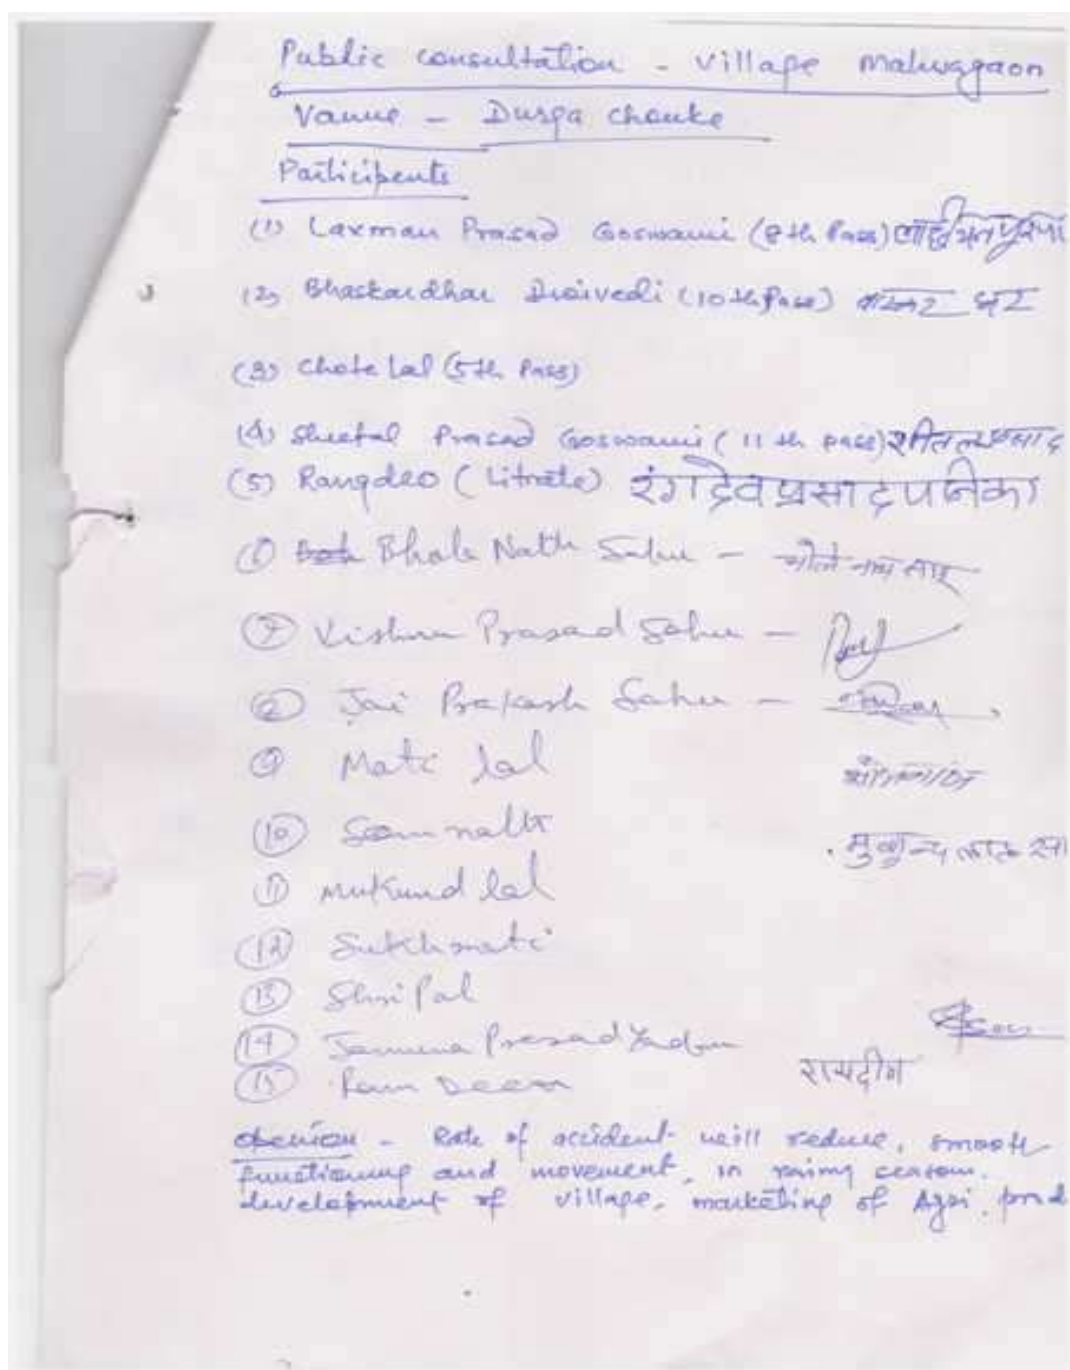 Public consultation - village Mahuagaon
Vanue - Durga chauke
Participents
(1) Laxman Prasad Goswami (8th Pass)
(2) Bhaskardhar Dwivedi (10th Pass) भास्कर धर
(3) Chote Lal (5th Pass)
(4) Sheetal Prasad Goswami (11th pass) शीतल प्रसाद
(5) Rangdeo (Litrate) रंगदेव प्रसाद पनिका
(6) Bhole Nath Sahu - भोले नाथ साहू
(7) Vishnu Prasad Sahu -
(8) Jai Prakash Sahu -
(9) Mati lal
(10) Somnath
(11) Mukund lal मुकुन्द लाल
(12) Sukhmati
(13) Shri Pal
(14) Jamuna Prasad Yadav
(15) Ram Deen रामदीन
Openion - Rate of accident will reduce, smooth
functioning and movement, in rainy season.
development of village, marketing of Agri. prod